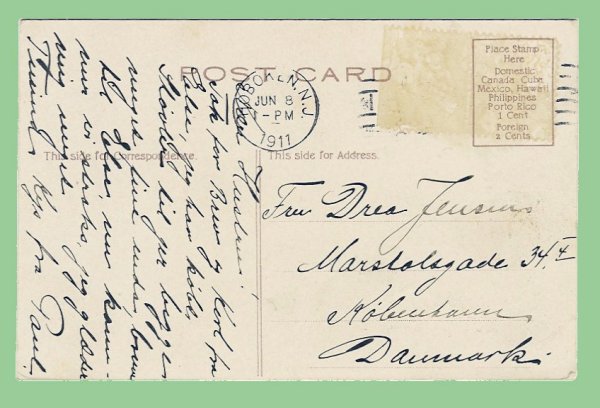 POST CARD
HOBOKEN, N.J.
JUN 8
1-PM
1911
Place Stamp
Here
Domestic
Canada Cuba
Mexico, Hawaii
Philippines
Porto Rico
1 Cent
Foreign
2 Cents
This side for Correspondence.
This side for Address.
Hustru!
Tak for Brev og Kort fra
Else, jeg har købt
til jer begge
meget fine endda,
til Else, nu kom-
mer vi straks, jeg glæder
mig meget
Tusinde Kys fra Paul.
Fru Drea Jensen
Marstalsgade 34.4
København
Danmark.